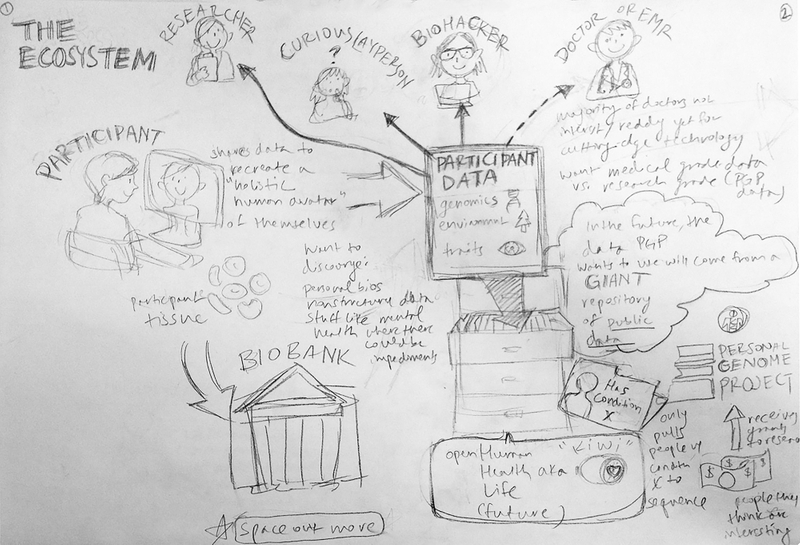 1
THE
ECOSYSTEM
RESEARCHER
CURIOUS LAYPERSON
?
BIOHACKER
DOCTOR OR EMR
2
majority of doctors not
ready yet for
cutting-edge technology
want medical grade data
vs. research grade (PGP
data)
PARTICIPANT
shares data to
recreate a
"holistic
human avatar"
of themselves
PARTICIPANT
DATA
genomics
environment
traits
In the future, the
data PGP
wants to use will come from a
GIANT
repository
of public
data
want to
discourge:
personal bios
nonstructure data
stuff like mental
health where there
could be
impediments
participant
tissue
BIOBANK
Has
condition
X
PERSONAL
GENOME
PROJECT
only
pulls
people w/
condtn
X to
sequence
receiving
grants
for research
$ $ $
people they
think are
interesting
openHuman "KiWi"
Health aka
Life
(future)
space out more